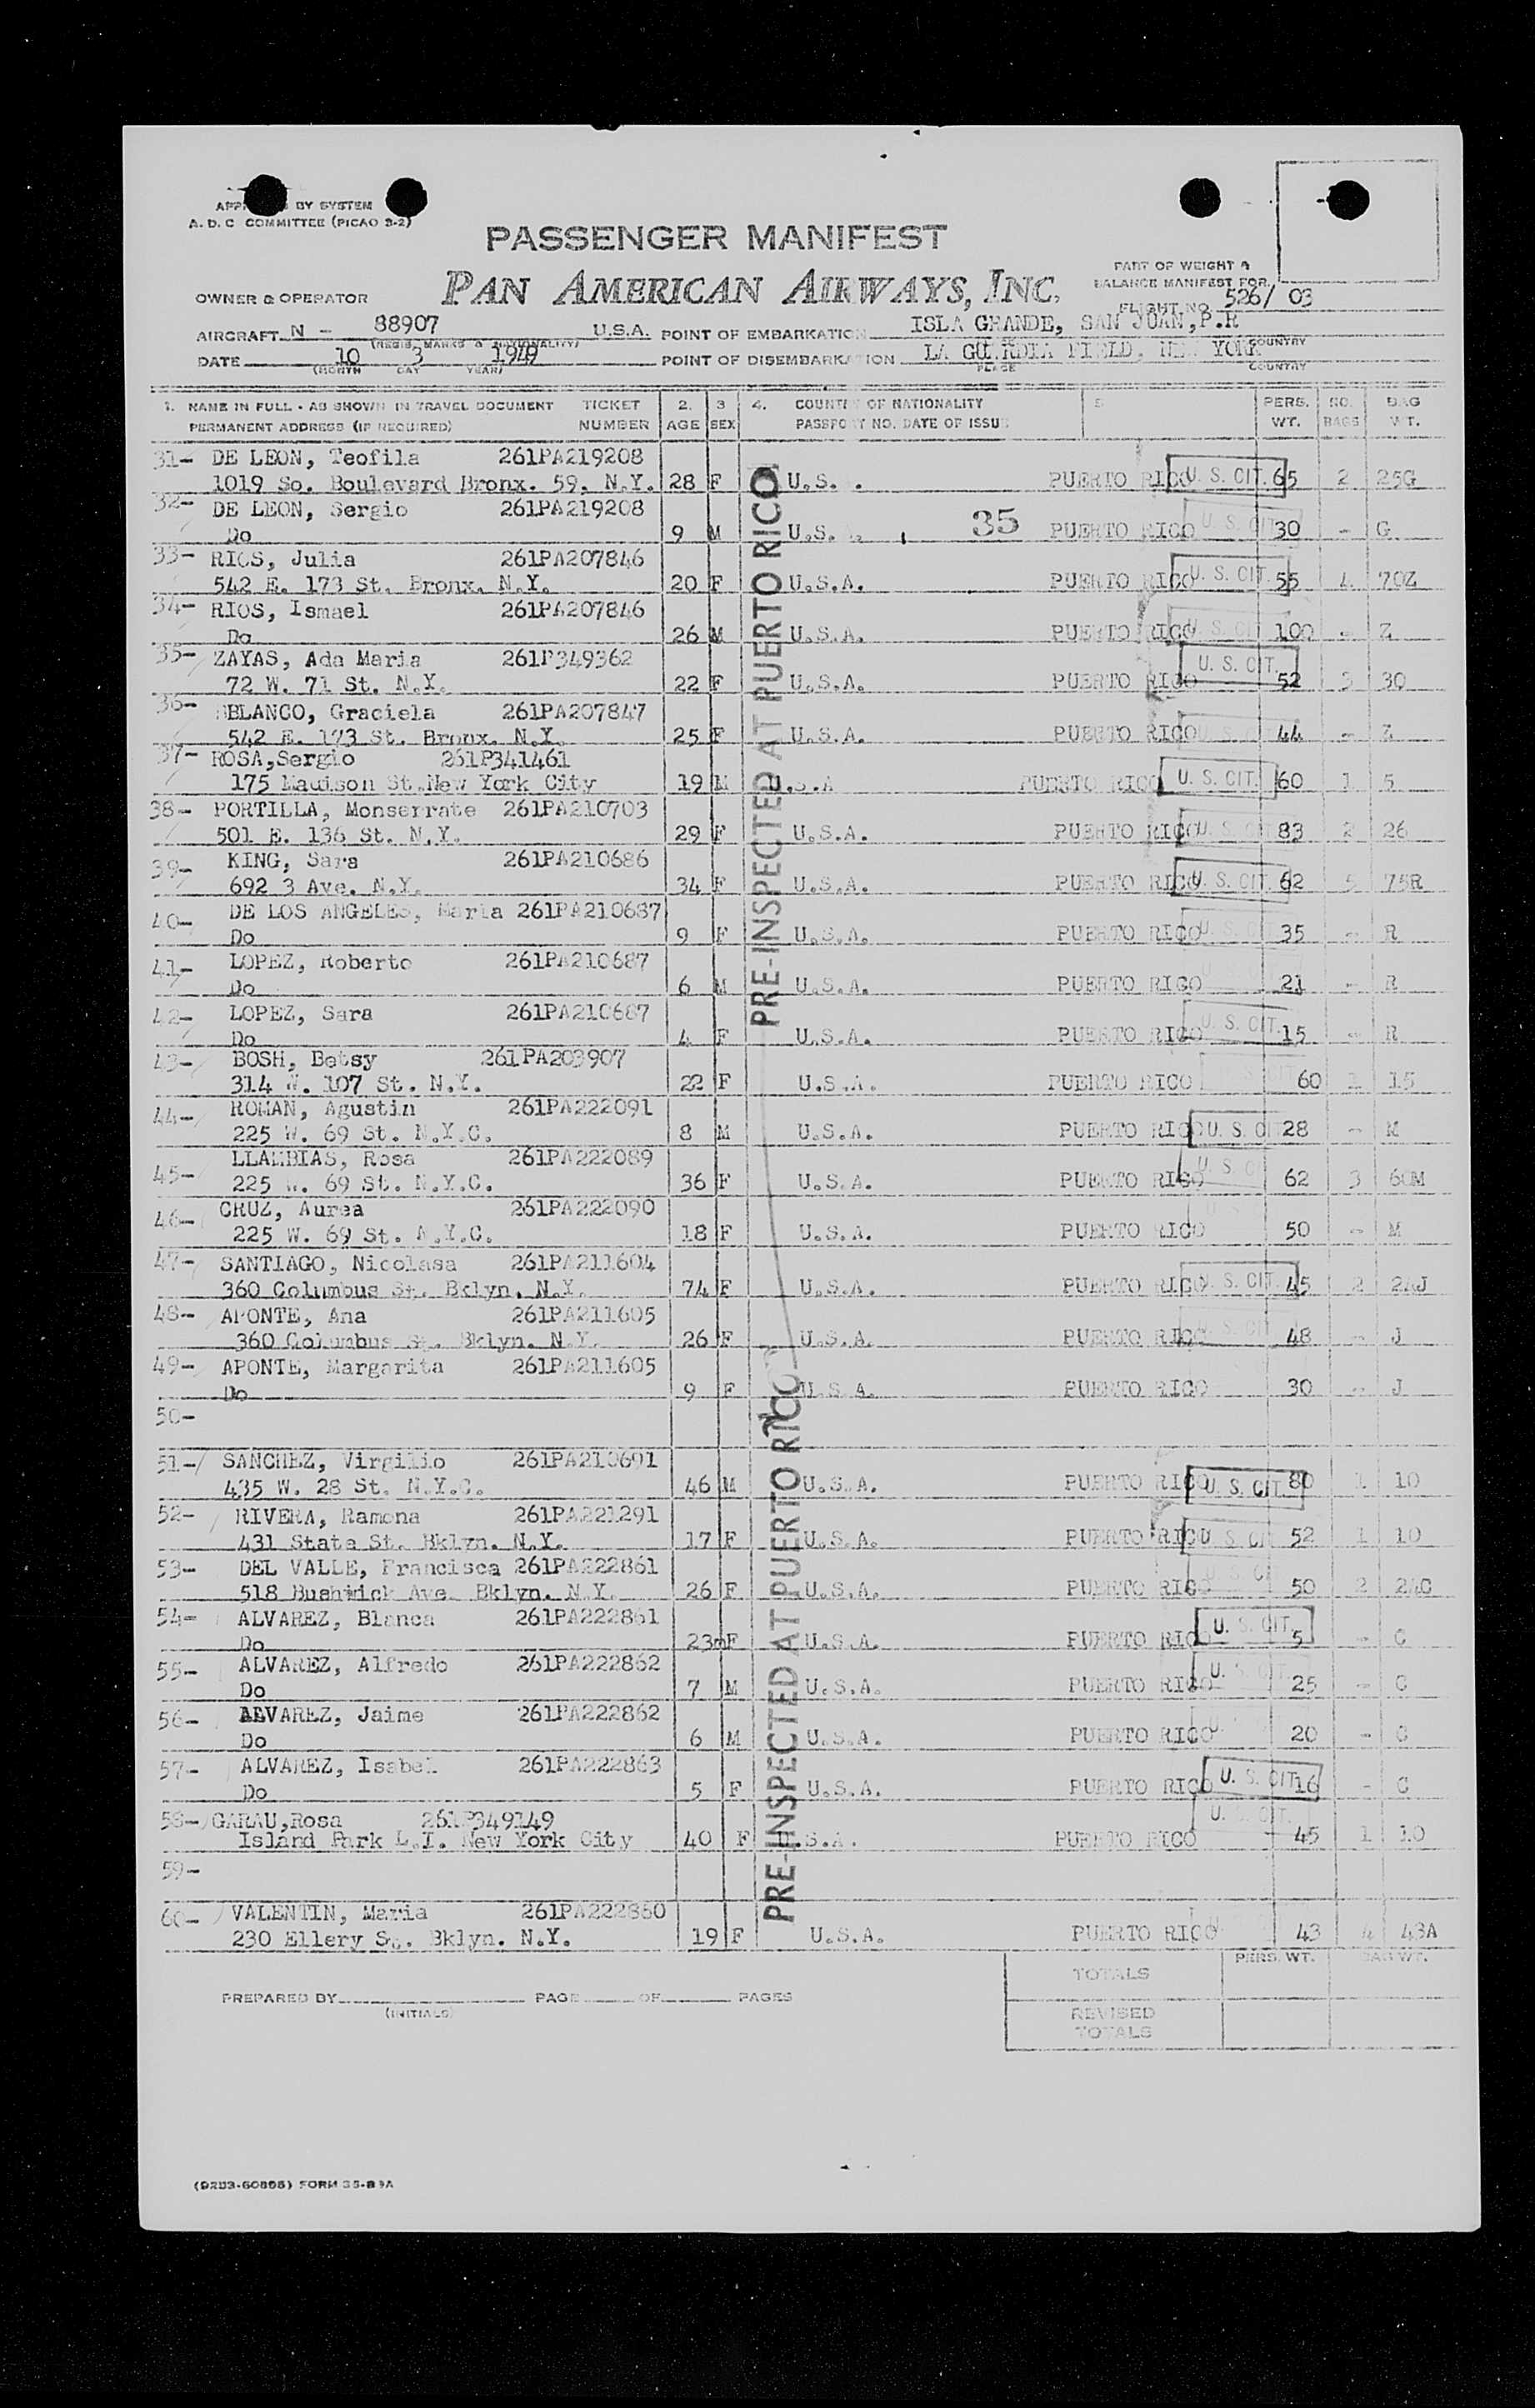 BY SYSTEM
A. D. C COMMITTEE (PICAO 3-2)
PASSENGER MANIFEST
PAN AMERICAN AIRWAYS, INC.
PART OF WEIGHT &
BALANCE MANIFEST FOR
OWNER & OPERATOR
FLIGHT NO. 526/ 03
AIRCRAFT N - 88907 U.S.A. POINT OF EMBARKATION ISLA GRANDE, SAN JUAN, P.R
(REGIS. MARKS & NATIONALITY) COUNTRY
DATE 10 3 1949 POINT OF DISEMBARKATION LA GUARDIA FIELD, NEW YORK
(MONTH DAY YEAR) PLACE COUNTRY
1. NAME IN FULL - AS SHOWN IN TRAVEL DOCUMENT TICKET 2. 3 4. COUNTRY OF NATIONALITY 5 PERS. NO. BAG
PERMANENT ADDRESS (IF REQUIRED) NUMBER AGE SEX PASSPORT NO. DATE OF ISSUE WT. BAGS WT.
31- DE LEON, Teofila 261PA219208
1019 So. Boulevard Bronx. 59, N.Y. 28 F U.S. . PUERTO RICO U. S. CIT. 65 2 25G
32- DE LEON, Sergio 261PA219208
Do 9 M U.S. 35 PUERTO RICO U. S. CIT 30 - G
33- RIOS, Julia 261PA207846
542 E. 173 St. Bronx. N.Y. 20 F U.S.A. PUERTO RICO U. S. CIT. 55 4 70Z
34- RIOS, Ismael 261PA207846
Do 26 M U.S.A. PUERTO RICO U. S. CIT 100 - Z
35- ZAYAS, Ada Maria 261P349362
72 W. 71 St. N.Y. 22 F U.S.A. PUERTO RICO U. S. CIT. 52 3 30
36- BLANCO, Graciela 261PA207847
542 E. 173 St. Bronx. N.Y. 25 F U.S.A. PUERTO RICO 44 - Z
37- ROSA,Sergio 261P341461
175 Madison St.New York City 19 M U.S.A PUERTO RICO U. S. CIT. 60 1 5
38- PORTILLA, Monserrate 261PA210703
501 E. 136 St. N.Y. 29 F U.S.A. PUERTO RICO U. S. C 83 2 26
39- KING, Sara 261PA210686
692 3 Ave. N.Y. 34 F U.S.A. PUERTO RICO U. S. CIT 62 5 75R
40- DE LOS ANGELES, Maria 261PA210687
Do 9 F U.S.A. PUERTO RICO U. S. C 35 - R
41- LOPEZ, Roberto 261PA210687
Do 6 M U.S.A. PUERTO RICO 21 - R
42- LOPEZ, Sara 261PA210687
Do 4 F U.S.A. PUERTO RICO U. S. CIT. 15 - R
43- BOSH, Betsy 261PA203907
314 W. 107 St. N.Y. 22 F U.S.A. PUERTO RICO 60 1 15
44- ROMAN, Agustin 261PA222091
225 W. 69 St. N.Y.C. 8 M U.S.A. PUERTO RICO U. S. C 28 - M
45- LLAMBIAS, Rosa 261PA222089
225 W. 69 St. N.Y.C. 36 F U.S.A. PUERTO RICO U. S. C 62 3 60M
46- CRUZ, Aurea 261PA222090
225 W. 69 St. N.Y.C. 18 F U.S.A. PUERTO RICO 50 - M
47- SANTIAGO, Nicolasa 261PA211604
360 Columbus St. Bklyn. N.Y. 74 F U.S.A. PUERTO RICO U. S. CIT. 45 2 24J
48- APONTE, Ana 261PA211605
360 Columbus St. Bklyn. N.Y. 26 F U.S.A. PUERTO RICO U. S. CIT 48 - J
49- APONTE, Margarita 261PA211605
Do 9 F U.S.A. PUERTO RICO 30 - J
50-
51- SANCHEZ, Virgilio 261PA210691
435 W. 28 St. N.Y.C. 46 M U.S.A. PUERTO RICO U. S. CIT. 80 1 10
52- RIVERA, Ramona 261PA221291
431 State St. Bklyn. N.Y. 17 F U.S.A. PUERTO RICO U S CI 52 1 10
53- DEL VALLE, Francisca 261PA222861
518 Bushwick Ave. Bklyn. N.Y. 26 F U.S.A. PUERTO RICO 50 2 24C
54- ALVAREZ, Blanca 261PA222861
Do 23m F U.S.A. PUERTO RICO U. S. CIT. 5 - C
55- ALVAREZ, Alfredo 261PA222862
Do 7 M U.S.A. PUERTO RICO U. S. CIT 25 - C
56- ALVAREZ, Jaime 261PA222862
Do 6 M U.S.A. PUERTO RICO 20 - C
57- ALVAREZ, Isabel 261PA222863
Do 5 F U.S.A. PUERTO RICO U. S. CIT 16 - C
58- GARAU,Rosa 261P349149
Island Park L.I. New York City 40 F U.S.A. PUERTO RICO U. S. CIT. 45 1 10
59-
60- VALENTIN, Maria 261PA222860
230 Ellery St. Bklyn. N.Y. 19 F U.S.A. PUERTO RICO 43 4 43A
PRE-INSPECTED AT PUERTO RICO
PRE-INSPECTED AT PUERTO RICO
TOTALS PERS. WT. BAG WT.
PREPARED BY PAGE OF PAGES
(INITIALS)
REVISED
TOTALS
FORM 35-B